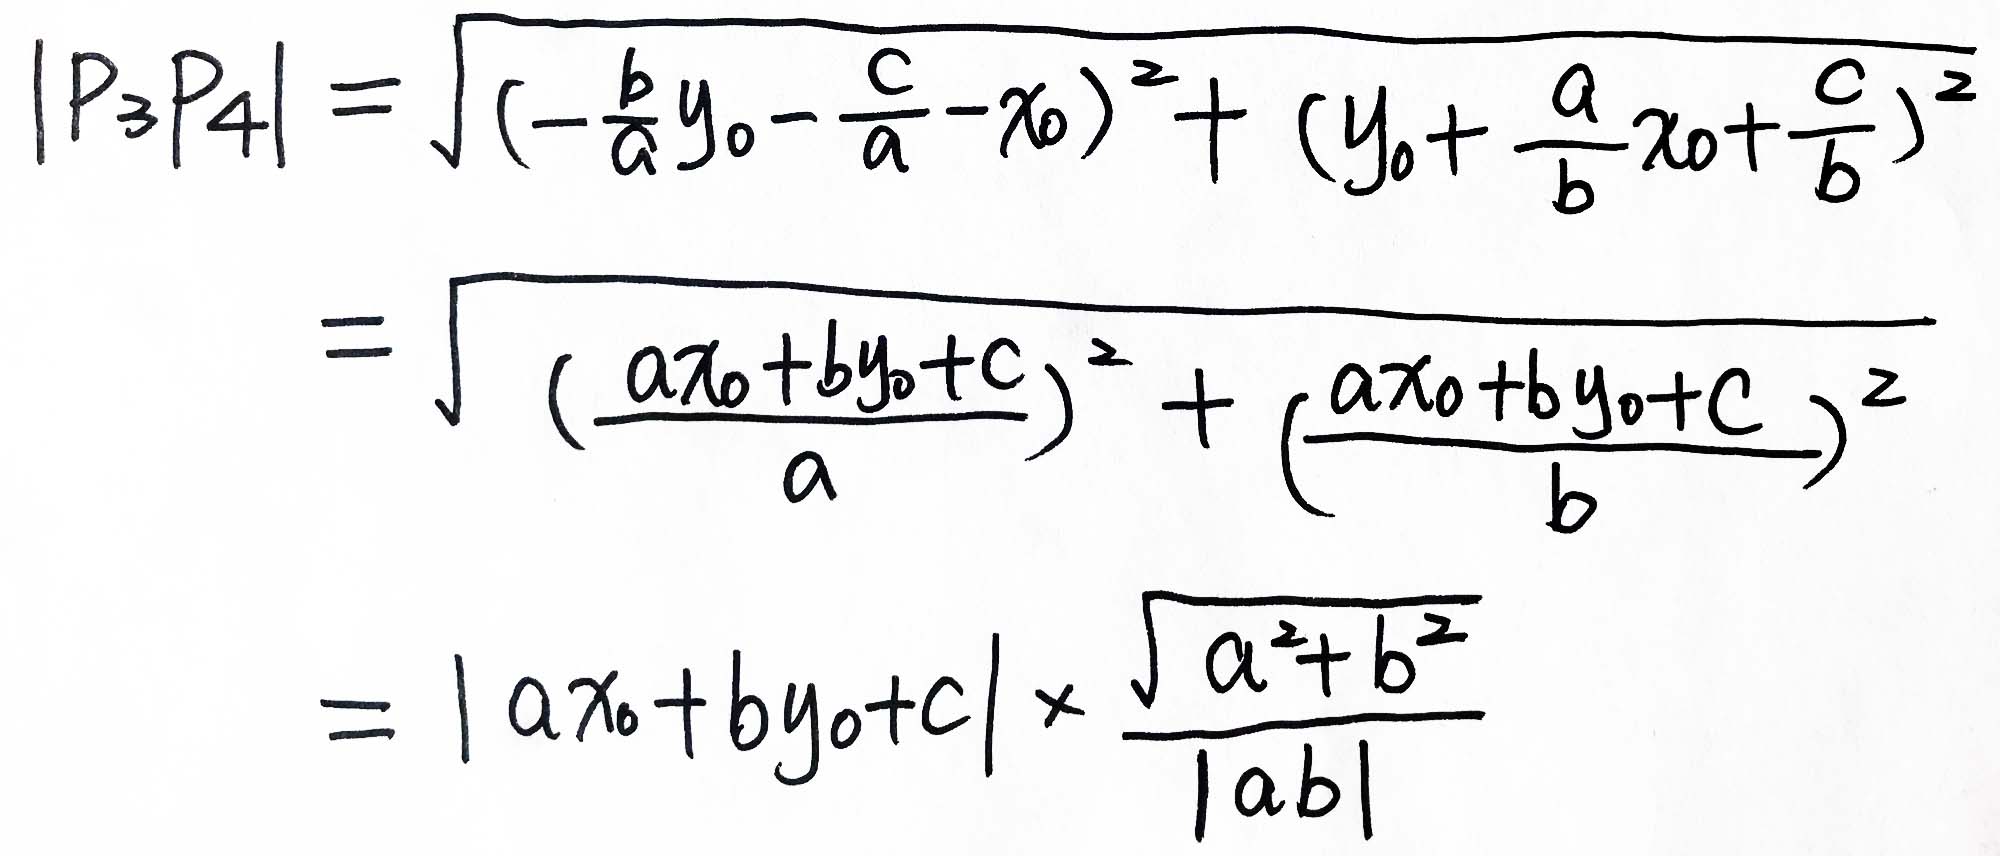 |P₃P₄| = √((-b/a y₀ - c/a - x₀)² + (y₀ + a/b x₀ + c/b)²)
= √(((ax₀+by₀+c)/a)² + ((ax₀+by₀+c)/b)²)
= |ax₀+by₀+c| × √(a²+b²)/|ab|